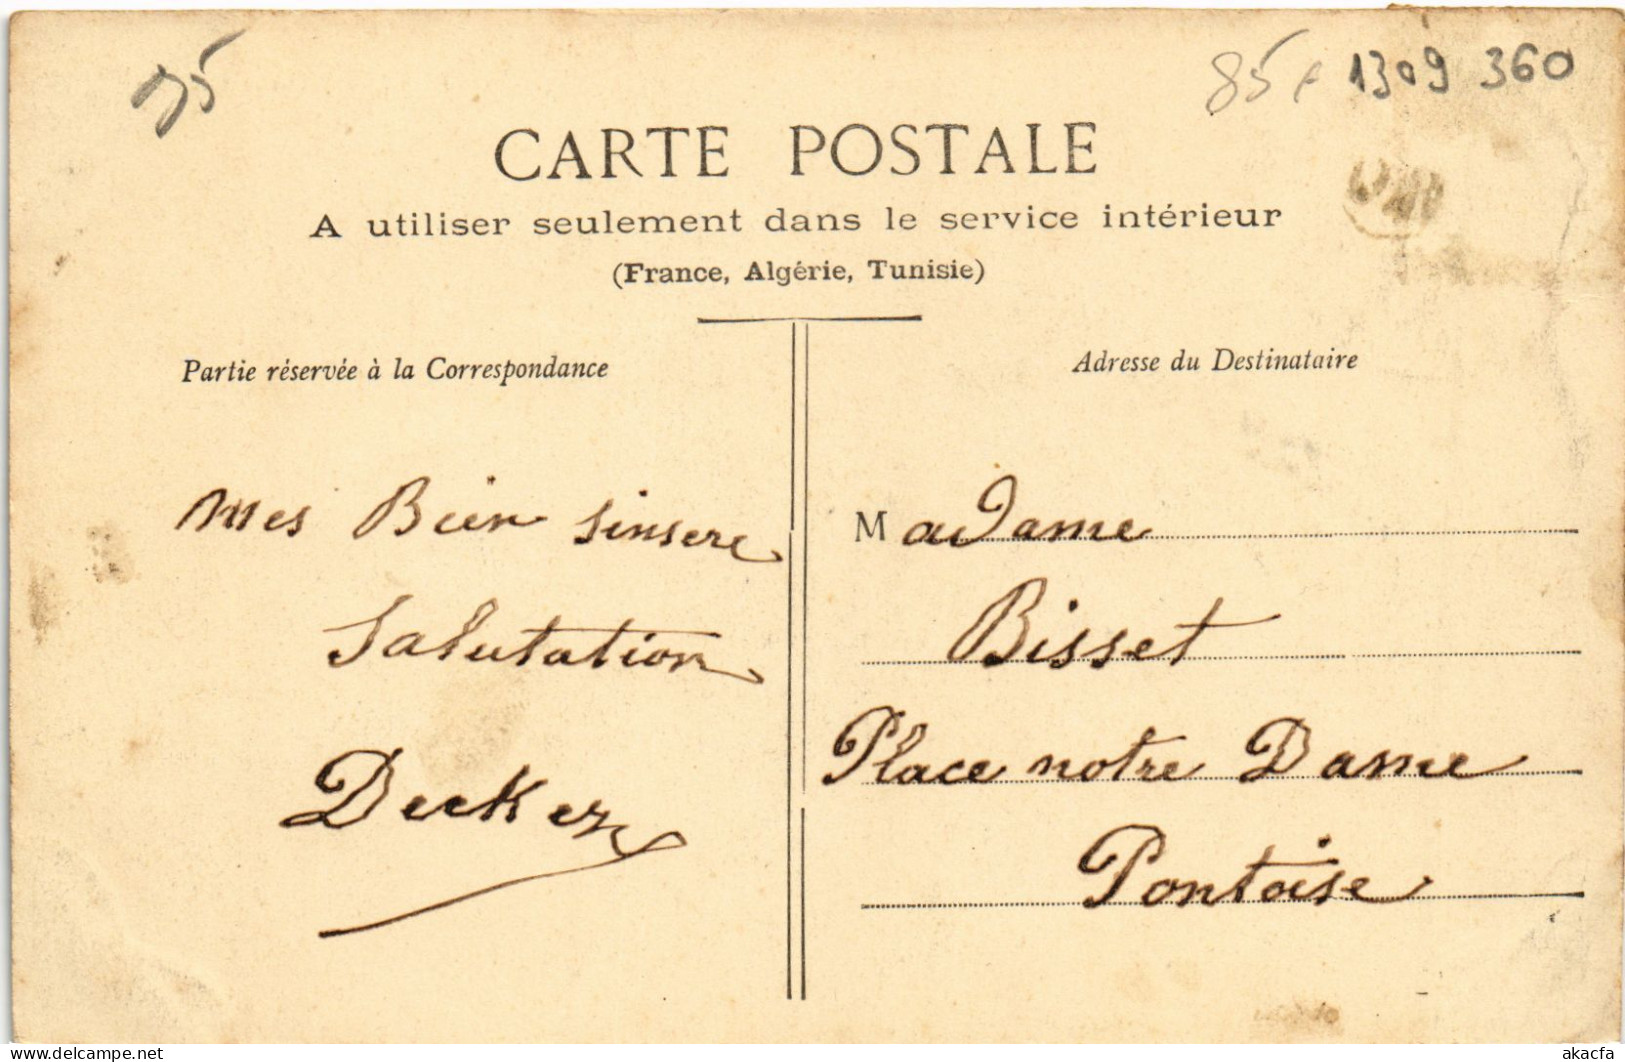 95
85 1309 360
CARTE POSTALE
A utiliser seulement dans le service intérieur
(France, Algérie, Tunisie)
Partie réservée à la Correspondance
Adresse du Destinataire
Mes Bien sinsere
Salutation
Decker
Madame
Bisset
Place notre Dame
Pontoise
delcampe.net
akacfa